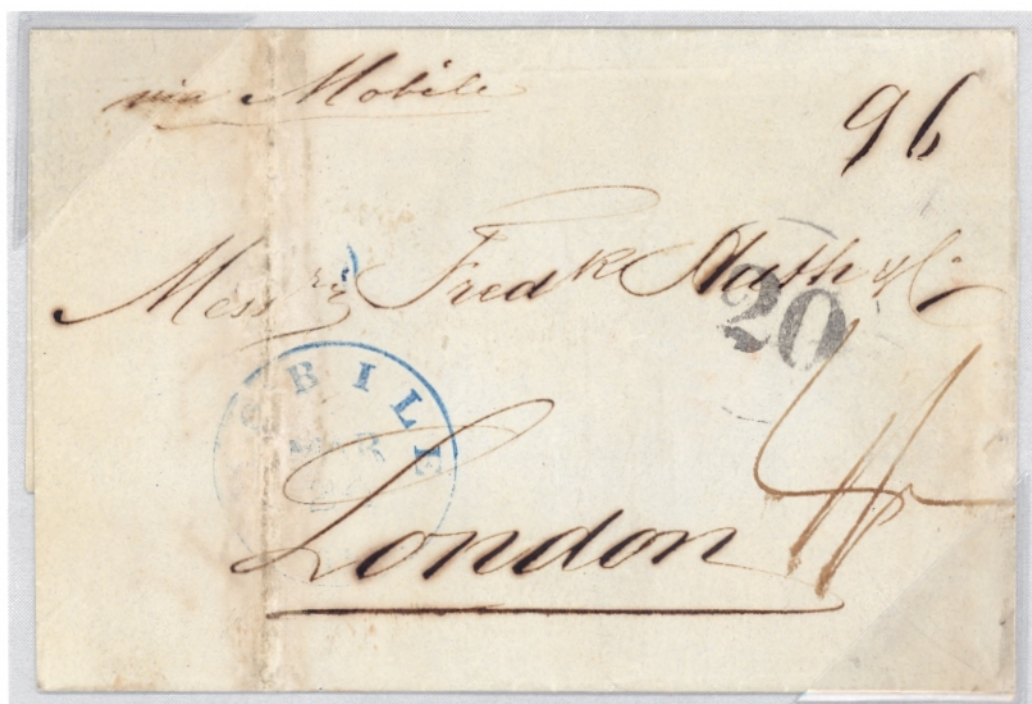 via Mobile
96
Messrs Fredk Huth & Co
20
BILE
MAR
London